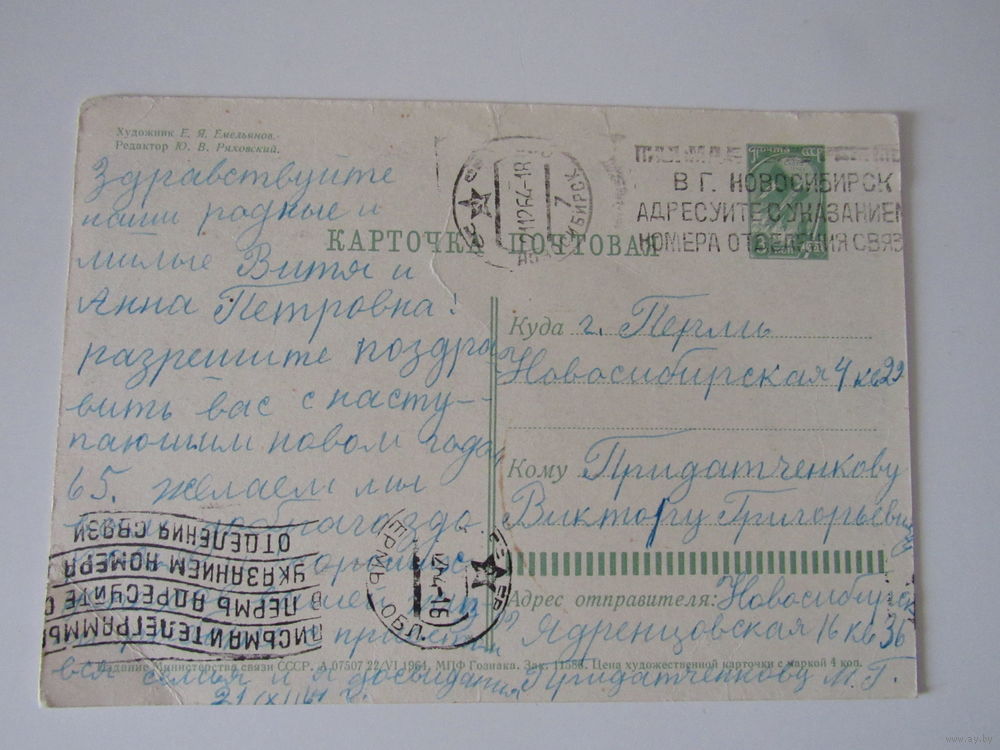 Художник Е. Я. Емельянов.
Редактор Ю. В. Ряховский.
Здравствуйте
наши родные и
милые Витя и
Анна Петровна!
разрешите поздра
вить вас с насту-
пающим новом годом
65. желаем мы
вся семья и я досвидания
21/XII 64 г.
КАРТОЧКА ПОЧТОВАЯ
ПОЧТА СССР
В Г. НОВОСИБИРСК
АДРЕСУЙТЕ С УКАЗАНИЕМ
НОМЕРА ОТДЕЛЕНИЯ СВЯЗ
Куда г. Пермь
Новосибирская 4 кв 22
Кому Придатченкову
Виктору Григорьевичу
Адрес отправителя: Новосибирск
Ядренцовская 16 кв 36
Придатченкову М. Г.
ПИСЬМА И ТЕЛЕГРАММЫ
В ПЕРМЬ АДРЕСУЙТЕ С
УКАЗАНИЕМ НОМЕРА
ОТДЕЛЕНИЯ СВЯЗИ
Издание Министерства связи СССР. А 07507 22/VI 1964. МПФ Гознака. Зак. 11586. Цена художественной карточки с маркой 4 коп.
www.ay.by